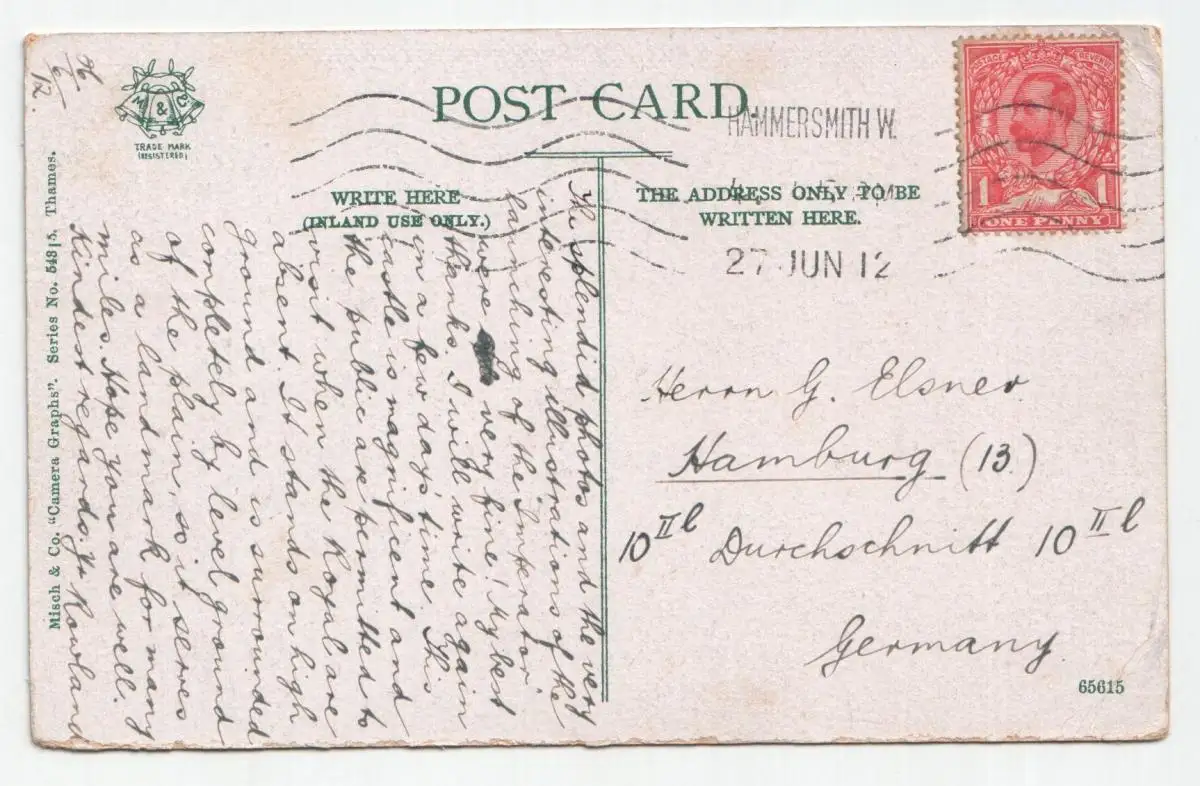 26/6/12.
M & Co
TRADE MARK
(REGISTERED)
POST CARD
HAMMERSMITH W.
27 JUN 12
POSTAGE REVENUE
1 1
ONE PENNY
WRITE HERE
(INLAND USE ONLY.)
THE ADDRESS ONLY TO BE
WRITTEN HERE.
The splendid photos and the very
interesting illustrations of the
launching of the "Imperator"
were very fine! My best
thanks. I will write again
in a few day's time. This
castle is magnificent and
the public are permitted to
visit when the Royal are
absent. It stands on high
ground and is surrounded
completely by level ground
of the plain, so it serves
as a landmark for many
miles. Hope you are well.
Kindest regards. Yr Rowland
Herrn G. Elsner.
Hamburg (13.)
10 II l Durchschnitt 10 II l
Germany.
65615
Misch & Co. "Camera Graphs". Series No. 543/5. Thames.